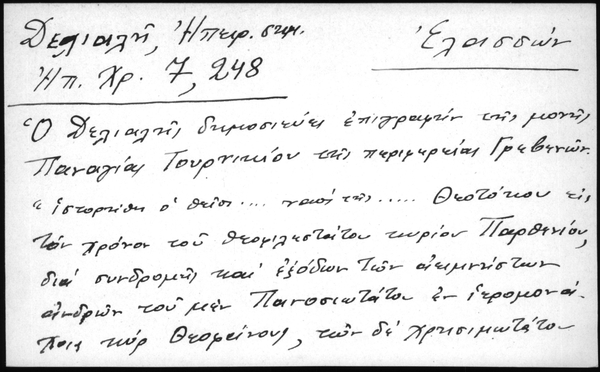 Δελιαλῆ, Ἠπειρ. σημ.
Ἐλασσών
Ἠπ. Χρ. 7, 248
Ὁ Δελιαλῆς δημοσιεύει ἐπιγραφήν τῆς μονῆς
Παναγίας Τουρνικίου τῆς περιφερείας Γρεβενῶν.
"ἱστορήθη ὁ θεῖος .... ναός τῆς ..... Θεοτόκου εἰς
τόν χρόνον τοῦ θεοφιλεστάτου κυρίου Παρθενίου,
διά συνδρομῆς καί ἐξόδων τῶν ἀειμνήστων
ἀνδρῶν τοῦ μέν Πανοσιωτάτου ἐν ἱερομονά-
χοις κύρ Θεοφάνους, τῶν δέ χρησιμωτάτο